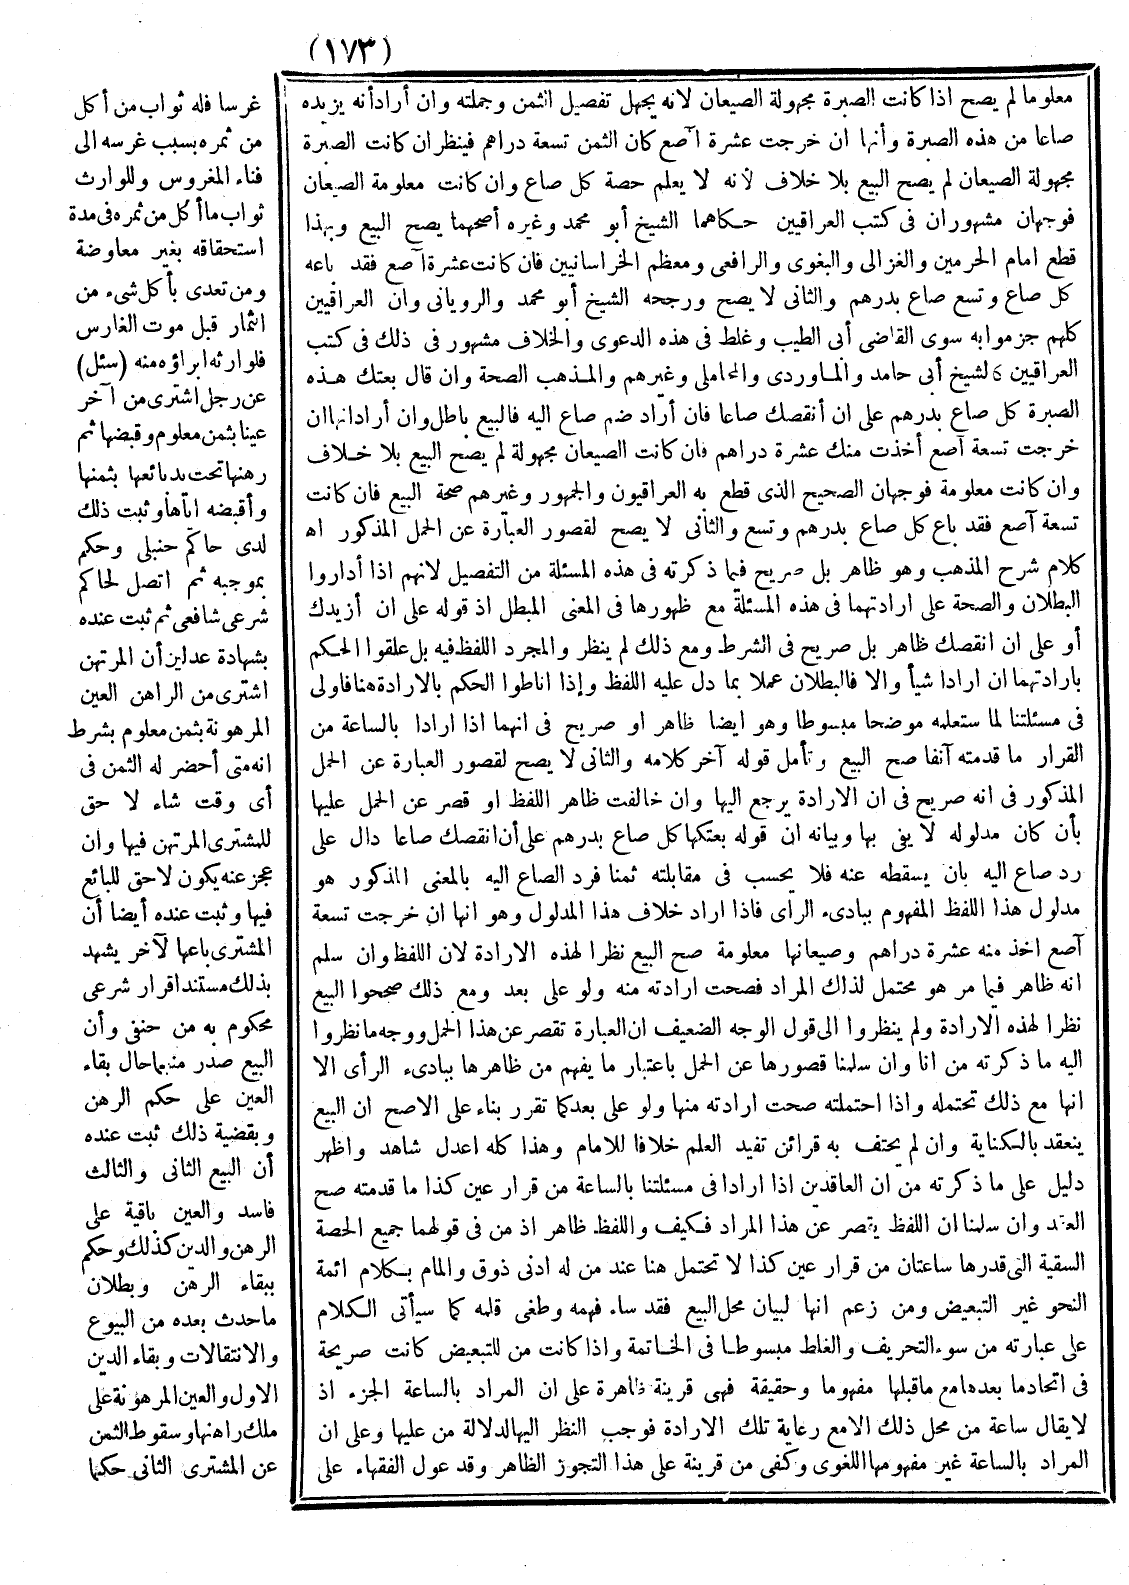 (١٧٣)
معلوما لم يصح اذا كانت الصبرة مجهولة الصيعان لانه يجهل تفصيل الثمن وجملته وان أراد أنه يزيده
صاعا من هذه الصبرة وأنها ان خرجت عشرة آصع كان الثمن تسعة دراهم فينظر ان كانت الصبرة
مجهولة الصيعان لم يصح البيع بلا خلاف لأنه لا يعلم حصة كل صاع وان كانت معلومة الصيعان
فوجهان مشهوران فى كتب العراقيين حكاهما الشيخ أبو محمد وغيره أصحهما يصح البيع وبهذا
قطع امام الحرمين والغزالى والبغوى والرافعى ومعظم الخراسانيين فان كانت عشرة آصع فقد باعه
كل صاع وتسع صاع بدرهم والثانى لا يصح ورجحه الشيخ أبو محمد والرويانى وان العراقيين
كلهم جزموا به سوى القاضى أبى الطيب وغلط فى هذه الدعوى والخلاف مشهور فى ذلك فى كتب
العراقيين كالشيخ أبى حامد والماوردى والمحاملى وغيرهم والمذهب الصحة وان قال بعتك هذه
الصبرة كل صاع بدرهم على ان أنقصك صاعا فان أراد ضم صاع اليه فالبيع باطل وان أرادا انها ان
خرجت تسعة آصع أخذت منك عشرة دراهم فان كانت الصيعان مجهولة لم يصح البيع بلا خلاف
وان كانت معلومة فوجهان الصحيح الذى قطع به العراقيون والجمهور وغيرهم صحة البيع فان كانت
تسعة آصع فقد باع كل صاع بدرهم وتسع والثانى لا يصح لقصور العبارة عن الحمل المذكور اه
كلام شرح المذهب وهو ظاهر بل صريح فيما ذكرته فى هذه المسئلة من التفصيل لانهم اذا أداروا
البطلان والصحة على ارادتهما فى هذه المسئلة مع ظهورها فى المعنى المبطل اذ قوله على ان أزيدك
أو على ان انقصك ظاهر بل صريح فى الشرط ومع ذلك لم ينظر والمجرد اللفظ فيه بل علقوا الحكم
بارادتهما ان ارادا شيأ والا فالبطلان عملا بما دل عليه اللفظ واذا اناطوا الحكم بالارادة هنا فاولى
فى مسئلتنا لما ستعلمه موضحا مبسوطا وهو ايضا ظاهر او صريح فى انهما اذا ارادا بالساعة من
القرار ما قدمته آنفا صح البيع وتأمل قوله آخر كلامه والثانى لا يصح لقصور العبارة عن الحمل
المذكور فى انه صريح فى ان الارادة يرجع اليها وان خالفت ظاهر اللفظ او قصر عن الحمل عليها
بأن كان مدلوله لا يفى بها وبيانه ان قوله بعتكها كل صاع بدرهم على أن انقصك صاعا دال على
رد صاع اليه بان يسقطه عنه فلا يحسب فى مقابلته ثمنا فرد الصاع اليه بالمعنى المذكور هو
مدلول هذا اللفظ المفهوم ببادىء الرأى فاذا اراد خلاف هذا المدلول وهو انها ان خرجت تسعة
آصع اخذ منه عشرة دراهم وصيعانها معلومة صح البيع نظرا لهذه الارادة لان اللفظ وان سلم
انه ظاهر فيما مر هو محتمل لذاك المراد فصحت ارادته منه ولو على بعد ومع ذلك صححوا البيع
نظرا لهذه الارادة ولم ينظروا الى قول الوجه الضعيف ان العبارة تقصر عن هذا الحمل ووجه ما نظروا
اليه ما ذكرته من انا وان سلمنا قصورها عن الحمل باعتبار ما يفهم من ظاهرها ببادىء الرأى الا
انها مع ذلك تحتمله واذا احتملته صحت ارادته منها ولو على بعد كما تقرر بناء على الاصح ان البيع
ينعقد بالكناية وان لم يحتف به قرائن تفيد العلم خلافا للامام وهذا كله اعدل شاهد واظهر
دليل على ما ذكرته من ان العاقدين اذا ارادا فى مسئلتنا بالساعة من قرار عين كذا ما قدمته صح
العقد وان سلمنا ان اللفظ يقصر عن هذا المراد فكيف واللفظ ظاهر اذ من فى قولهما جميع الحصة
السقية التى قدرها ساعتان من قرار عين كذا لا تحتمل هنا عند من له ادنى ذوق والمام بكلام ائمة
النحو غير التبعيض ومن زعم انها لبيان محل البيع فقد ساء فهمه وطغى قلمه كما سيأتى الكلام
على عبارته من سوء التحريف والغلط مبسوطا فى الخاتمة واذا كانت من للتبعيض كانت صريحة
فى اتحاد ما بعدها مع ما قبلها مفهوما وحقيقة فهى قرينة ظاهرة على ان المراد بالساعة الجزء اذ
لا يقال ساعة من محل ذلك الامع رعاية تلك الارادة فوجب النظر اليها لدلالة من عليها وعلى ان
المراد بالساعة غير مفهومها اللغوى وكفى من قرينة على هذا التجوز الظاهر وقد عول الفقهاء على
غرسا فله ثواب من أكل
من ثمره بسبب غرسه الى
فناء المغروس وللوارث
ثواب ما أكل من ثمره فى مدة
استحقاقه بغير معاوضة
ومن تعدى بأكل شىء من
الثمار قبل موت الغارس
فلوارثه ابراؤه منه (سئل)
عن رجل اشترى من آخر
عينا بثمن معلوم وقبضها ثم
رهنها تحت يد بائعها بثمنها
وأقبضه اياها وثبت ذلك
لدى حاكم حنبلى وحكم
بموجبه ثم اتصل لحاكم
شرعى شافعى ثم ثبت عنده
بشهادة عدلين أن المرتهن
اشترى من الراهن العين
المرهونة بثمن معلوم بشرط
انه متى أحضر له الثمن فى
أى وقت شاء لا حق
للمشترى المرتهن فيها وان
عجز عنه يكون لا حق للبائع
فيها وثبت عنده أيضا أن
المشترى باعها لآخر يشهد
بذلك مستند اقرار شرعى
محكوم به من حنفى وأن
البيع صدر منهما حال بقاء
العين على حكم الرهن
وبقضية ذلك ثبت عنده
أن البيع الثانى والثالث
فاسد والعين باقية على
الرهن والدين كذلك وحكم
ببقاء الرهن وبطلان
ما حدث بعده من البيوع
والانتقالات وبقاء الدين
الاول والعين المرهونة على
ملك راهنها وسقوط الثمن
عن المشترى الثانى حكما